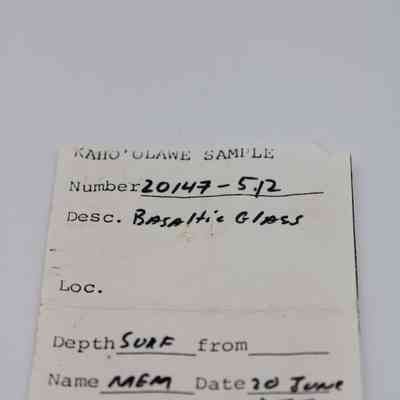 KAHO'OLAWE SAMPLE
Number 20147-5.12
Desc. Basaltic Glass
Loc.
Depth SURF from
Name MEM Date 20 June